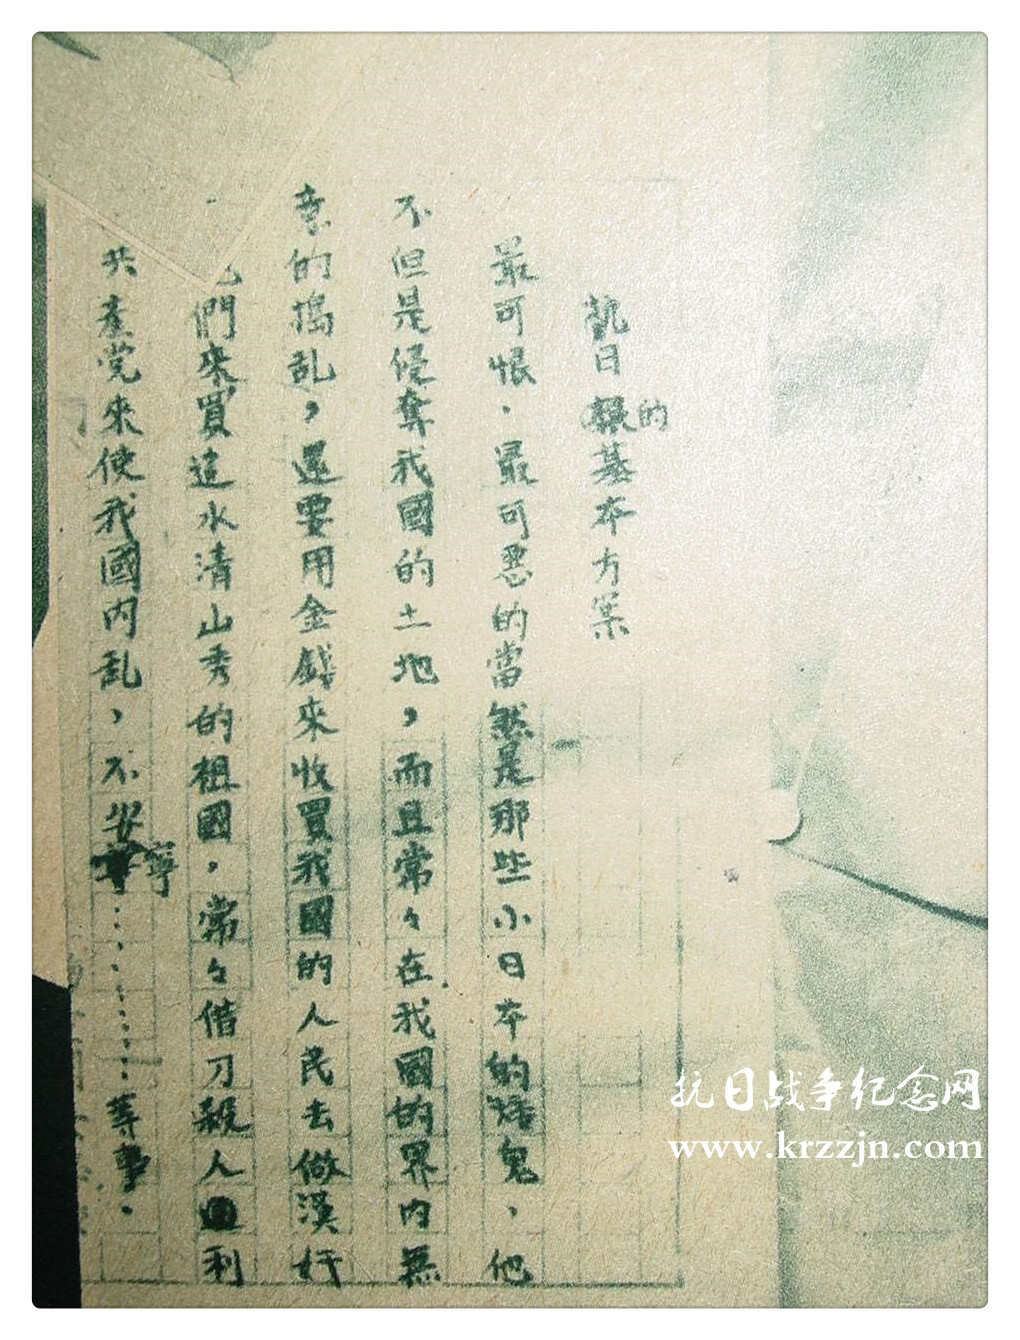 抗日的基本方案
最可恨．最可惡的當然是那些小日本的鬼，他
不但是侵奪我國的土地，而且常々在我國的界內無
意的搗乱，還要用金錢來收買我國的人民去做漢奸
們來買這水清山秀的祖國，常々借刀殺人利
共產党來使我國內乱，不安寧…………等事．
抗日战争纪念网
www.krzzjn.com